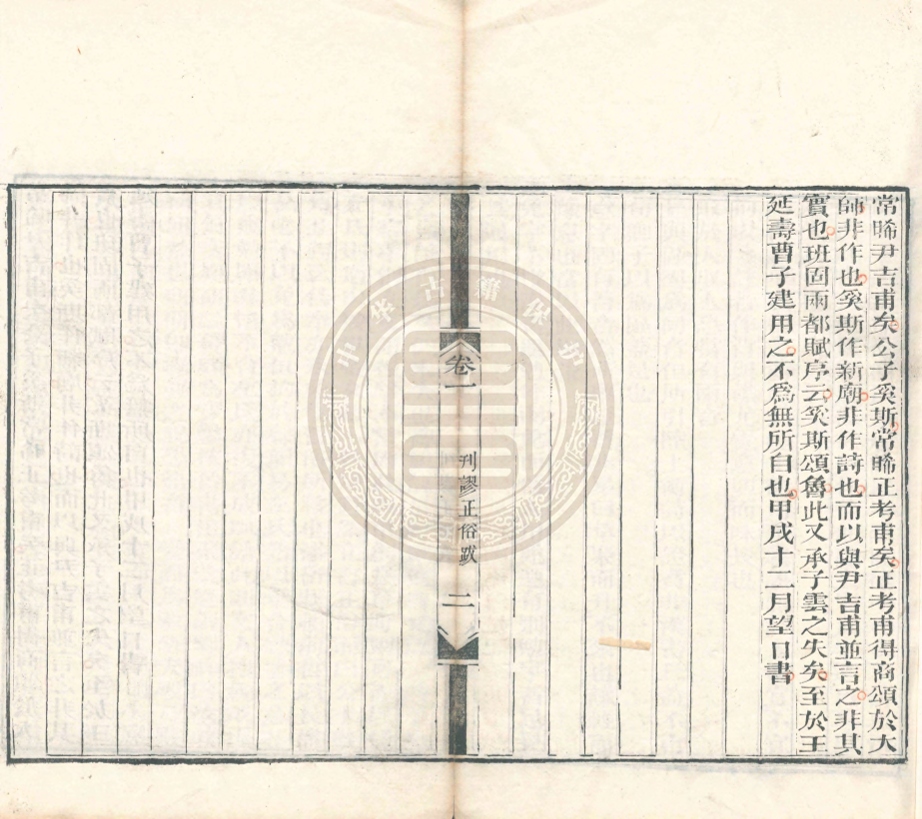 常睎尹吉甫矣公子奚斯常睎正考甫矣正考甫得商頌於大
師非作也奚斯作新廟非作詩也而以與尹吉甫並言之非其
實也班固兩都賦序云奚斯頌魯此又承子雲之失矣至於王
延壽曹子建用之不為無所自也甲戌十二月望日書
卷一
刊謬正俗跋
二
中华古籍保护